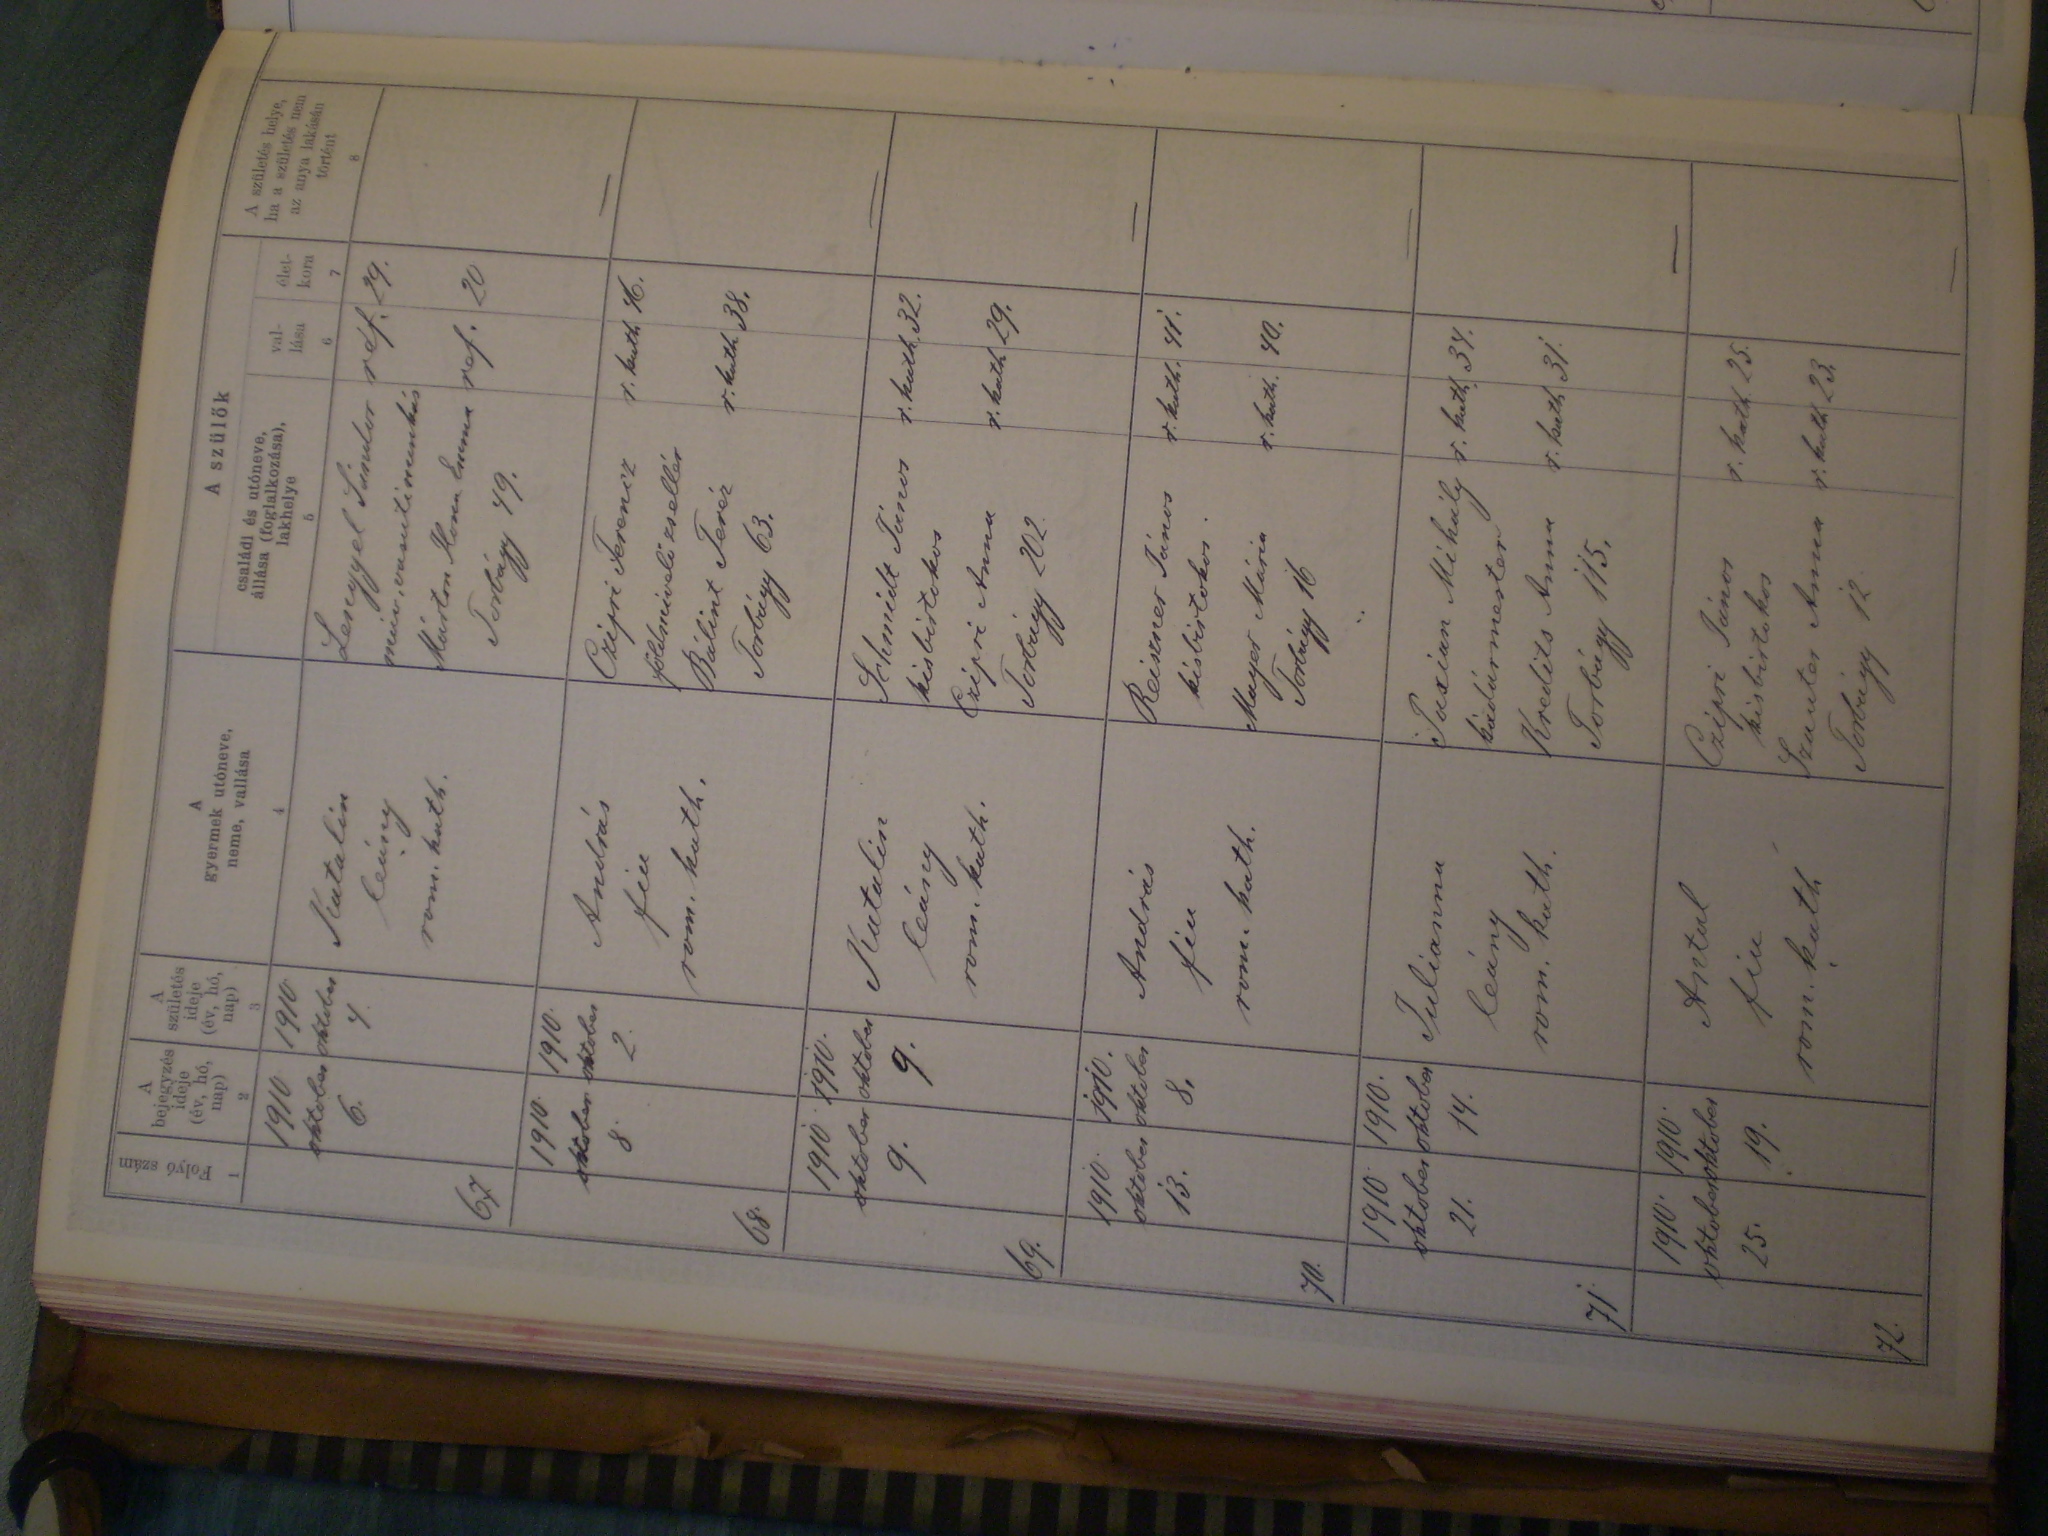 A szülők
Folyó szám
A
bejegyzés
ideje
(év, hó,
nap)
A
születés
ideje
(év, hó,
nap)
A
gyermek utóneve,
neme, vallása
családi és utóneve,
állása (foglalkozása),
lakhelye
val-
lása
élet-
kora
A születés helye,
ha a születés nem
az anya lakásán
történt
1
2
3
4
5
6
7
8
67
1910
oktober
6.
1910
oktober
4.
Katalin
leány
rom. kath.
Lengyel Sándor
vasuti munkás
Márton Emma
Torbágy 49.
ref.
ref.
29.
20
68.
1910.
oktober
8.
1910.
oktober
2.
András
fiu
rom. kath.
Czipri Ferencz
földmivelő zsellér
Bálint Teréz
Torbágy 63.
r. kath.
r. kath.
46.
38.
—
69.
1910.
oktober
9.
1910.
oktober
9.
Katalin
leány
rom. kath.
Schmidt János
kisbirtokos
Czipri Anna
Torbágy 202.
r. kath.
r. kath.
32.
29.
—
70.
1910.
oktober
13.
1910.
oktober
8.
András
fiu
rom. kath.
Reiszner János
kisbirtokos.
Mayer Mária
Torbágy 16
r. kath.
r. kath.
41.
40.
—
71.
1910.
oktober
21.
1910.
oktober
14.
Julianna
leány
rom. kath.
Paxian Mihály
kádármester
Kredits Anna
Torbágy 115.
r. kath.
r. kath.
34.
31.
—
72.
1910.
oktober
25.
1910.
oktober
19.
Antal
fiu
rom. kath
Czipri János
kisbirtokos
Szauter Anna
Torbágy 12.
r. kath.
r. kath.
25.
23.
—